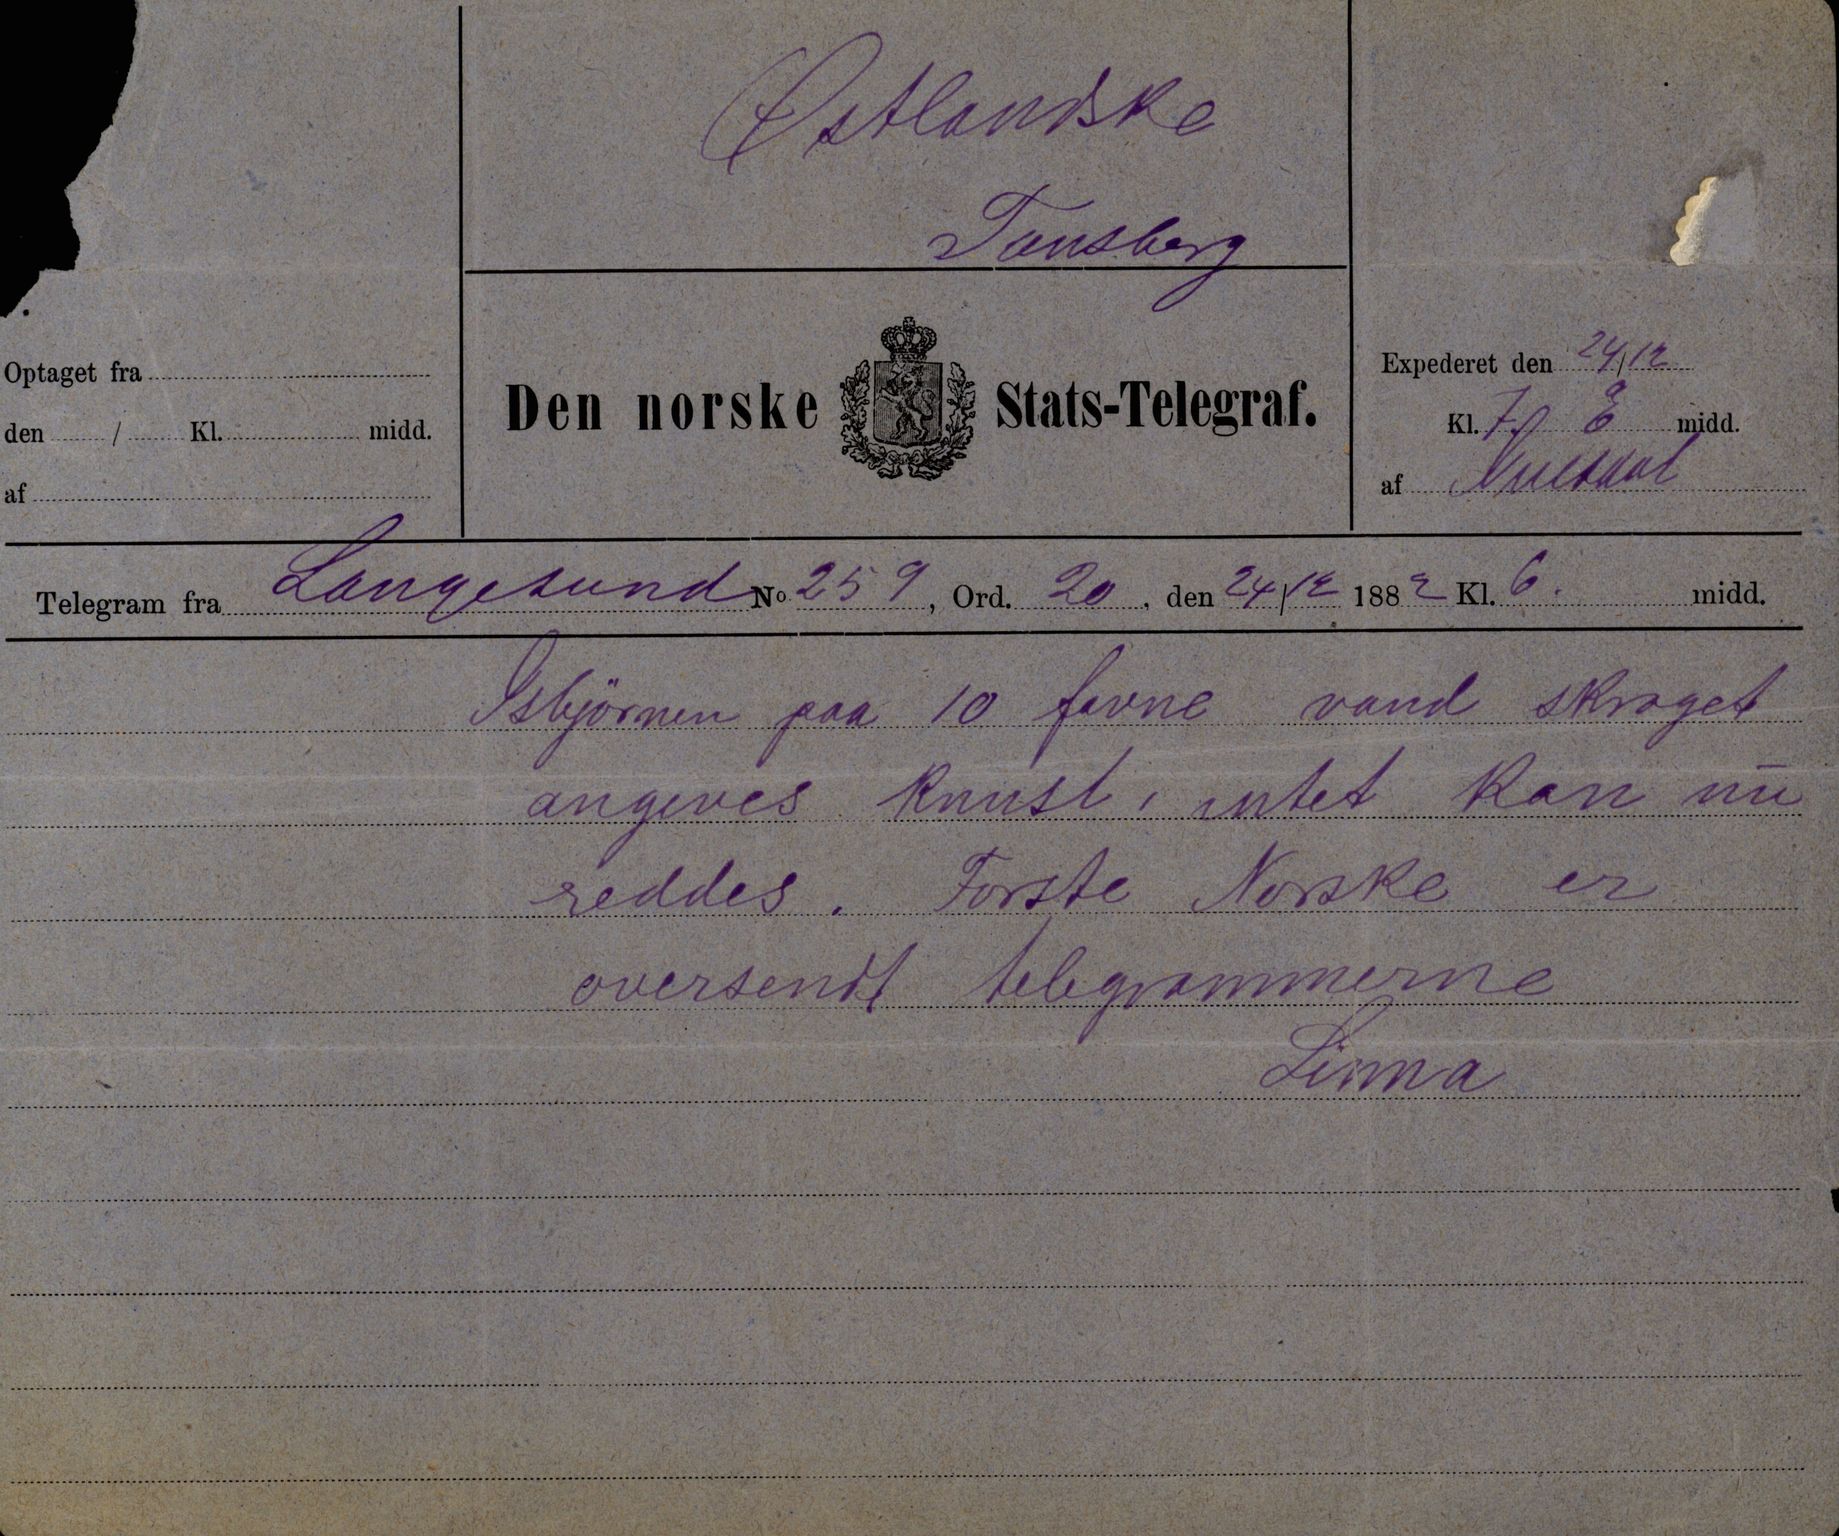 Østlandske
Tønsberg
Optaget fra
den / Kl. midd.
af
Den norske Stats-Telegraf.
Expederet den 24/12
Kl. 7. E midd.
af
Telegram fra Langesund No 259, Ord. 20, den 24/12 1882 Kl. 6. midd.
Isbjörnen paa 10 favne vand skroget
angives knust, intet kan nu
reddes. Forste Norske er
oversendt telegrammerne
Linna